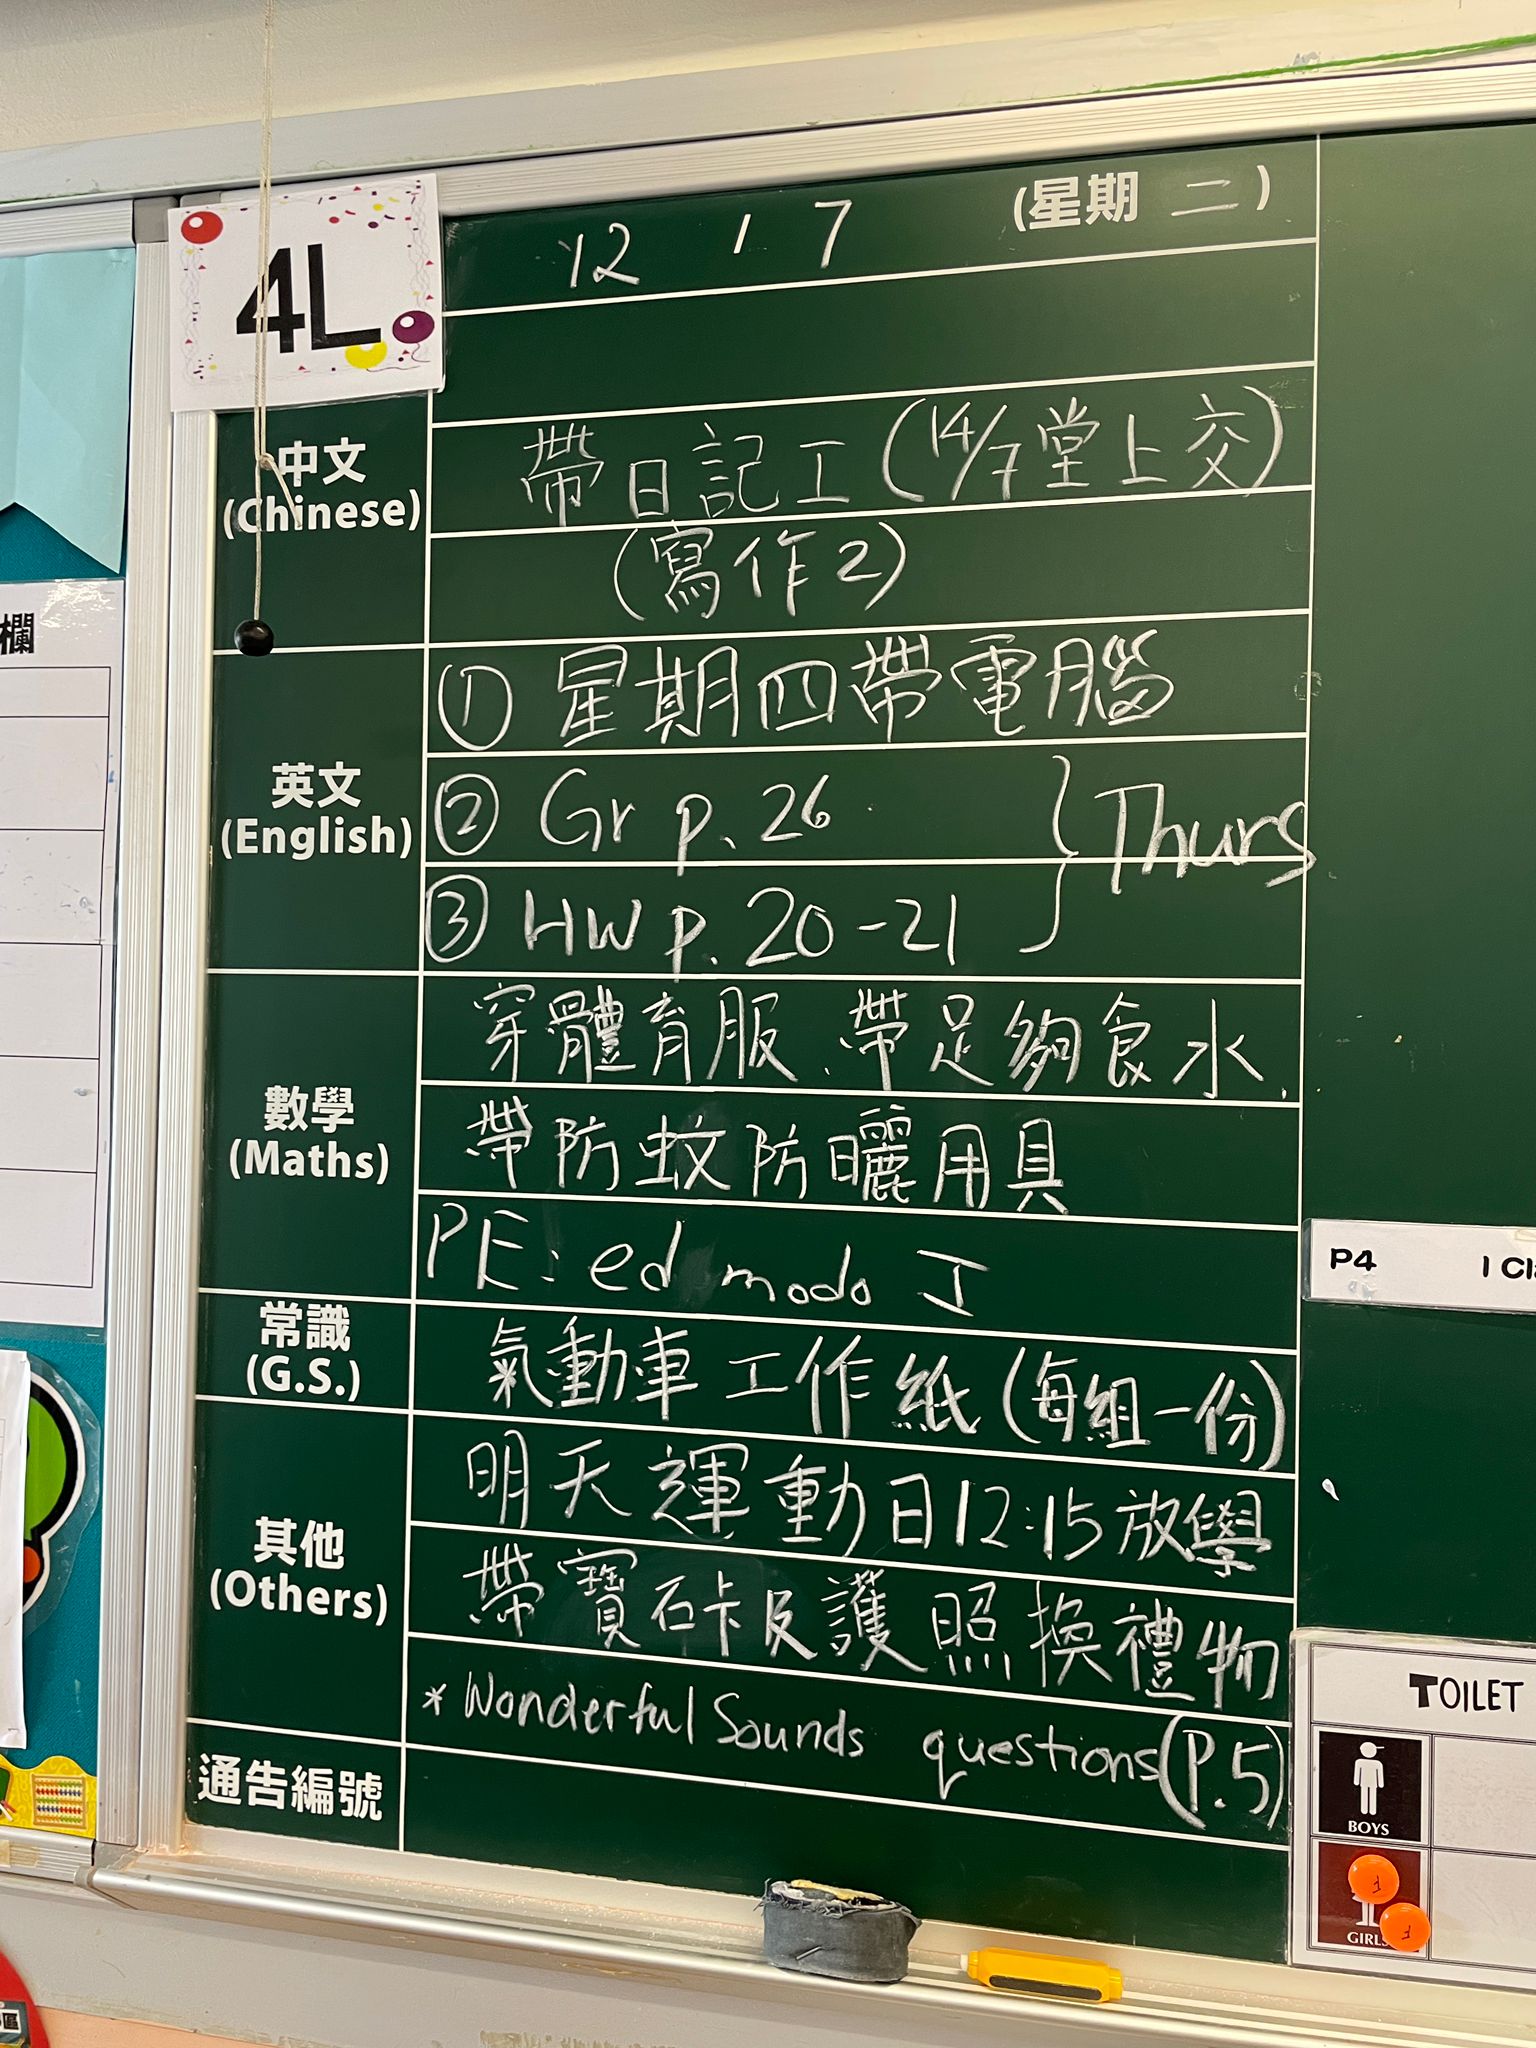 4L
12 / 7 (星期 二)
中文
(Chinese)
帶日記工(14/7堂上交)
(寫作2)
英文
(English)
① 星期四帶電腦
② Gr p. 26
③ HW p. 20-21
} Thurs
數學
(Maths)
穿體育服、帶足夠食水、
帶防蚊防曬用具
PE: edmodo 工
常識
(G.S.)
氣動車工作紙(每組一份)
其他
(Others)
明天運動日12:15放學
帶寶石卡及護照換禮物
* Wonderful Sounds questions (P.5)
通告編號
欄
P4
TOILET
BOYS
GIRLS